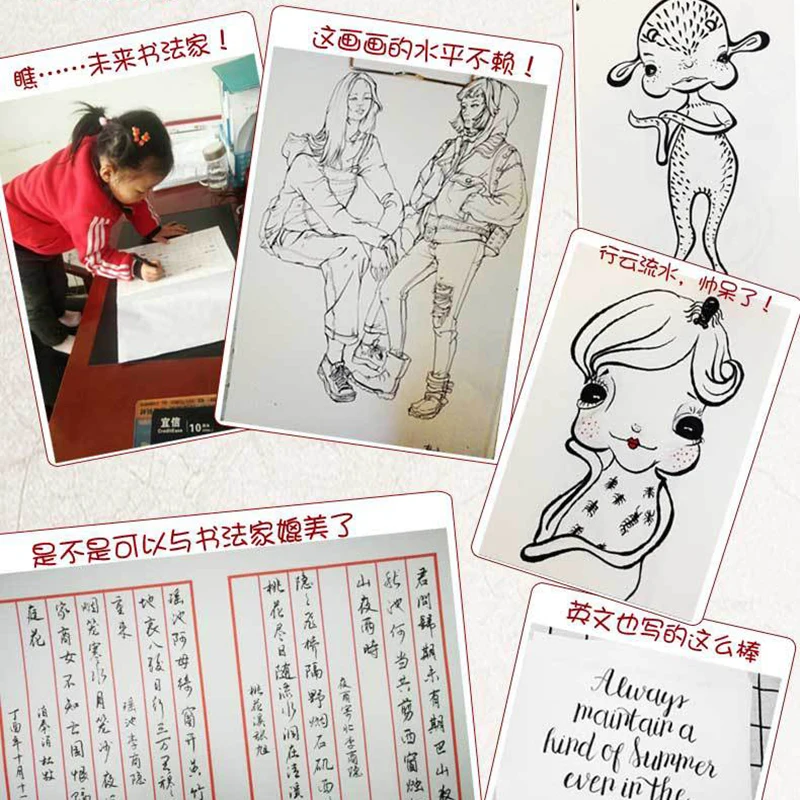 瞧……未来书法家！
这画画的水平不赖！
行云流水，帅呆了！
宜信
CreditEase
10
是不是可以与书法家媲美了
君問歸期未有期巴山
秋池何當共剪西窗燭
山夜雨時
夜雨寄北李商隐
隐隐飛橋隔野烟石矶西
桃花尽日随流水洞在清溪
桃花溪张旭
瑶池阿母绮窗开黄竹
地哀八骏日行三万里穆
重来
瑶池李商隐
烟笼寒水月笼沙夜
家商女不知亡国恨隔
庭花
泊秦淮杜牧
丁酉年十月十
英文也写的这么棒
Always
maintain a
kind of Summer
even in the